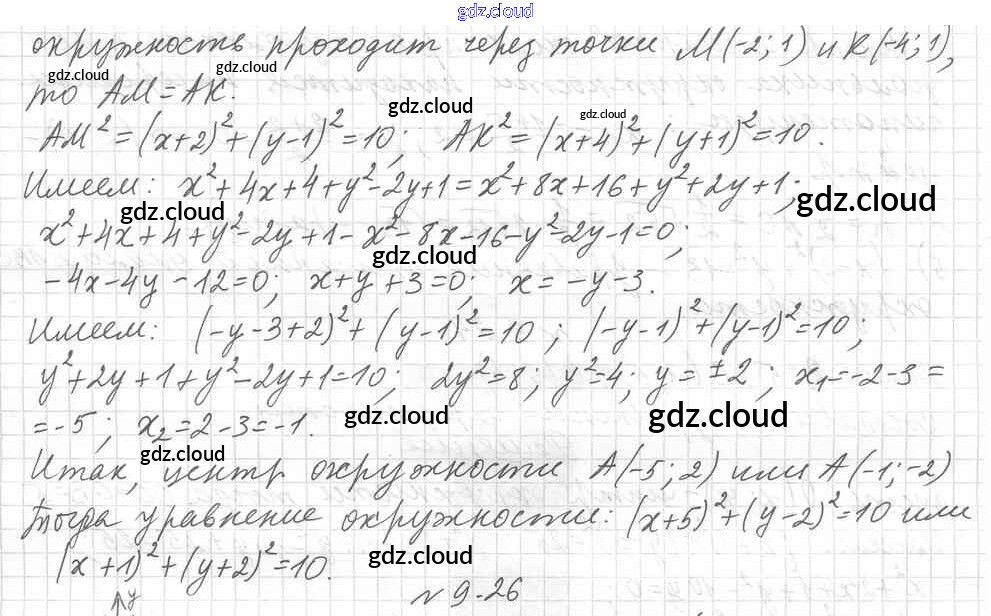 gdz.cloud
окружность проходит через точки M(-2; 1) и K(-4; 1),
gdz.cloud gdz.cloud
то AM = AK.
gdz.cloud gdz.cloud
AM² = (x+2)² + (y-1)² = 10; AK² = (x+4)² + (y+1)² = 10.
Имеем: x² + 4x + 4 + y² - 2y + 1 = x² + 8x + 16 + y² + 2y + 1;
gdz.cloud gdz.cloud
x² + 4x + 4 + y² - 2y + 1 - x² - 8x - 16 - y² - 2y - 1 = 0;
gdz.cloud
-4x - 4y - 12 = 0; x + y + 3 = 0; x = -y - 3.
Имеем: (-y - 3 + 2)² + (y - 1)² = 10; (-y - 1)² + (y - 1)² = 10;
y² + 2y + 1 + y² - 2y + 1 = 10; 2y² = 8; y² = 4; y = ±2; x₁ = -2 - 3 =
gdz.cloud gdz.cloud
= -5; x₂ = 2 - 3 = -1.
gdz.cloud
Итак, центр окружности A(-5; 2) или A(-1; -2)
Тогда уравнение окружности: (x+5)² + (y-2)² = 10 или
gdz.cloud
(x+1)² + (y+2)² = 10.
N 9.26
y